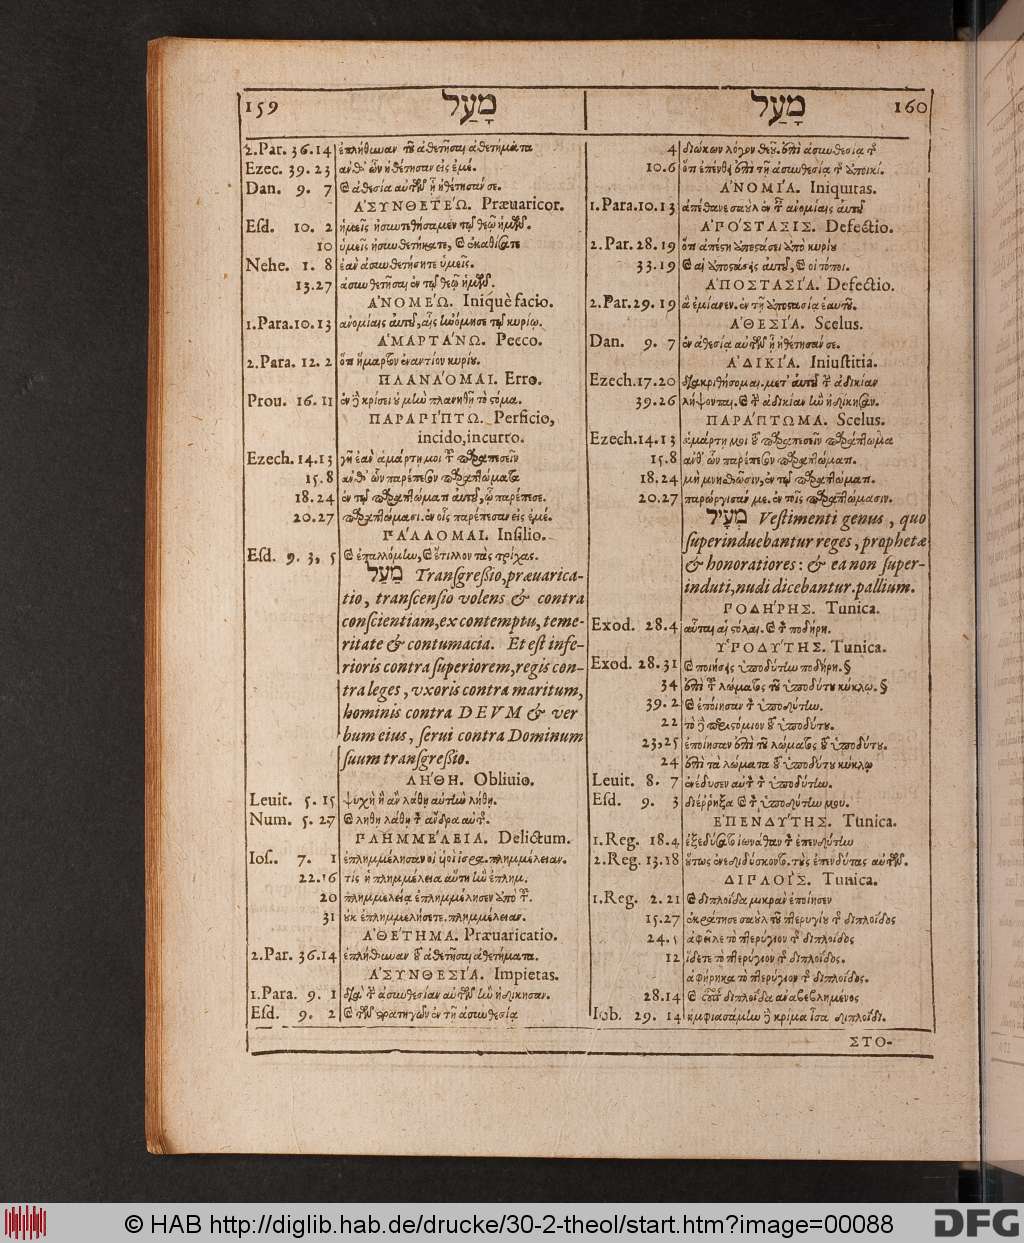 159 מָעַל
2.Par. 36.14 ἐπλήθωναν τοῦ ἀθετῆσαι ἀθετήματα
Ezec. 39.23 ἀνθ' ὧν ἠθέτησαν εἰς ἐμέ.
Dan. 9. 7 ἀθεσίᾳ αὐτῶν ᾗ ἠθέτησάν σε.
ἈΣΥΝΘΕΤΕΏ. Præuaricor.
Esd. 10. 2 ἡμεῖς ἠσυνθετήσαμεν τῷ θεῷ ἡμῶν.
10 ὑμεῖς ἠσυνθετήκατε, καὶ ἐκαθίσατε
Nehe. 1. 8 ἐὰν ἀσυνθετήσητε ὑμεῖς.
13.27 ἀσυνθετῆσαι ἐν τῷ θεῷ ἡμῶν.
ἈΝΟΜΕΏ. Iniquè facio.
1.Para.10.13 ἀνομίαις αὐτοῦ, αἷς ἠνόμησε τῷ κυρίῳ.
ἉΜΑΡΤΆΝΩ. Pecco.
2.Para. 12. 2 ὅτι ἥμαρτον ἐναντίον κυρίου.
ΠΛΑΝΆΟΜΑΙ. Erro.
Prou. 16.11 ἐν δὲ κρίσει οὐ μὴ πλανηθῇ τὸ στόμα.
ΠΑΡΑΡΊΠΤΩ. Perficio,
incido, incurro.
Ezech. 14.13 γῆ ἐὰν ἁμάρτῃ μοι τοῦ παραπεσεῖν
15.8 ἀνθ' ὧν παρέπεσον παραπτώματα
18.24 ἐν τῷ παραπτώματι αὐτοῦ, ᾧ παρέπεσε.
20.27 παραπτώμασι. ἐν οἷς παρέπεσαν εἰς ἐμέ.
ΠΆΛΛΟΜΑΙ. Insilio.
Esd. 9. 3, 5 καὶ ἐπαλλόμην, καὶ ἔτιλλον τὰς τρίχας.
מַעַל Transgressio, præuarica-
tio, transcensio volens & contra
conscientiam, ex contemptu, teme-
ritate & contumacia. Et est infe-
rioris contra superiorem, regis con-
tra leges, vxoris contra maritum,
hominis contra DEVM & ver
bum eius, serui contra Dominum
suum transgressio.
ΛΉΘΗ. Obliuio.
Leuit. 5. 15 ψυχὴ ἣ ἂν λάθῃ αὐτὴν λήθη.
Num. 5. 27 καὶ λήθῃ λάθῃ τὸν ἄνδρα αὐτῆς.
ΠΛΗΜΜΈΛΕΙΑ. Delictum.
Ios. 7. 1 ἐπλημμέλησαν οἱ υἱοὶ ἰσρα. πλημμέλειαν.
22.16 τίς ἡ πλημμέλεια αὕτη ἣν ἐπλημ.
20 πλημμελείᾳ ἐπλημμέλησεν ἀπὸ τοῦ.
31 οὐκ ἐπλημμελήσετε. πλημμέλειαν.
ἈΘΈΤΗΜΑ. Præuaricatio.
2.Par. 36.14 ἐπλήθωναν τοῦ ἀθετῆσαι ἀθετήματα.
ἈΣΥΝΘΕΣΊΑ. Impietas.
1.Para. 9. 1 διὰ τὴν ἀσυνθεσίαν αὐτῶν ἣν ἠδίκησαν.
Esd. 9. 2 καὶ τῶν στρατηγῶν ἐν τῇ ἀσυνθεσίᾳ
מָעַל 160
4 διώκων λόγον θεοῦ. ἐπὶ ἀσυνθεσίᾳ τῆς
10.6 ὅτι ἐπένθει ἐπὶ τῇ ἀσυνθεσίᾳ τῆς ἀποικί.
ἈΝΟΜΊΑ. Iniquitas.
1.Para.10.13 ἀπέθανε σαοὺλ ἐν ταῖς ἀνομίαις αὐτοῦ
ἈΠΌΣΤΑΣΙΣ. Defectio.
2.Par. 28.19 ὅτι ἀπέστη ἀποστάσει ἀπὸ κυρίου
33.19 καὶ αἱ ἀποστάσεις αὐτοῦ, καὶ οἱ τόποι.
ἈΠΟΣΤΑΣΊΑ. Defectio.
2.Par. 29.19 ἃ ἐμίανεν. ἐν τῇ ἀποστασίᾳ ἑαυτοῦ.
ἈΘΕΣΊΑ. Scelus.
Dan. 9. 7 ἐν ἀθεσίᾳ αὐτῶν ᾗ ἠθέτησάν σε.
ἈΔΙΚΊΑ. Iniustitia.
Ezech.17.20 διακριθήσομαι. μετ' αὐτοῦ τὴν ἀδικίαν
39.26 λήψονται. καὶ τὴν ἀδικίαν ἣν ἠδίκησαν.
ΠΑΡΆΠΤΩΜΑ. Scelus.
Ezech.14.13 ἁμάρτῃ μοι τοῦ παραπεσεῖν παράπτωμα
15.8 ἀνθ' ὧν παρέπεσον παραπτώματι.
18.24 μὴ μνησθῶσιν, ἐν τῷ παραπτώματι.
20.27 παρώργισάν με. ἐν τοῖς παραπτώμασιν.
מְעִיל Vestimenti genus, quo
superinduebantur reges, prophetæ
& honoratiores: & ea non super-
induti, nudi dicebantur. pallium.
ΠΟΔΉΡΗΣ. Tunica.
Exod. 28.4 αὗται αἱ στολαί. καὶ τὸν ποδήρη.
ὙΠΟΔΎΤΗΣ. Tunica.
Exod. 28.31 καὶ ποιήσεις ὑποδύτην ποδήρη. §
34 ἐπὶ τοῦ λώματος τοῦ ὑποδύτου κύκλῳ. §
39. 2 καὶ ἐποίησαν τὸν ὑποδύτην.
22 τὸ δὲ περιστόμιον τοῦ ὑποδύτου.
23,25 ἐποίησαν ἐπὶ τοῦ λώματος τοῦ ὑποδύτου.
24 ἐπὶ τὰ λώματα τοῦ ὑποδύτου κύκλῳ
Leuit. 8. 7 ἐνέδυσεν αὐτὸν τὸν ὑποδύτην.
Esd. 9. 3 διέρρηξα καὶ τὸν ὑποδύτην μου.
ἘΠΕΝΔΎΤΗΣ. Tunica.
1.Reg. 18.4 ἐξεδύσατο ἰωνάθαν τὸν ἐπενδύτην
2.Reg. 13.18 οὕτως ἐνεδιδύσκοντο. τοὺς ἐπενδύτας αὐτῶν.
ΔΙΠΛΟΪ́Σ. Tunica.
1.Reg. 2.21 καὶ διπλοΐδα μικρὰν ἐποίησεν
15.27 ἐκράτησε σαοὺλ τοῦ πτερυγίου τῆς διπλοΐδος
24.5 ἀφεῖλε τὸ πτερύγιον τῆς διπλοΐδος
12 ἴδετε τὸ πτερύγιον τῆς διπλοΐδος.
ἀφῄρηκα τὸ πτερύγιον τῆς διπλοΐδος.
28.14 καὶ οὗτος διπλοΐδα ἀναβεβλημένος
Iob. 29. 14 ἠμφιασάμην δὲ κρίμα ἴσα διπλοΐδι.
ΣΤΟ-
© HAB http://diglib.hab.de/drucke/30-2-theol/start.htm?image=00088
DFG